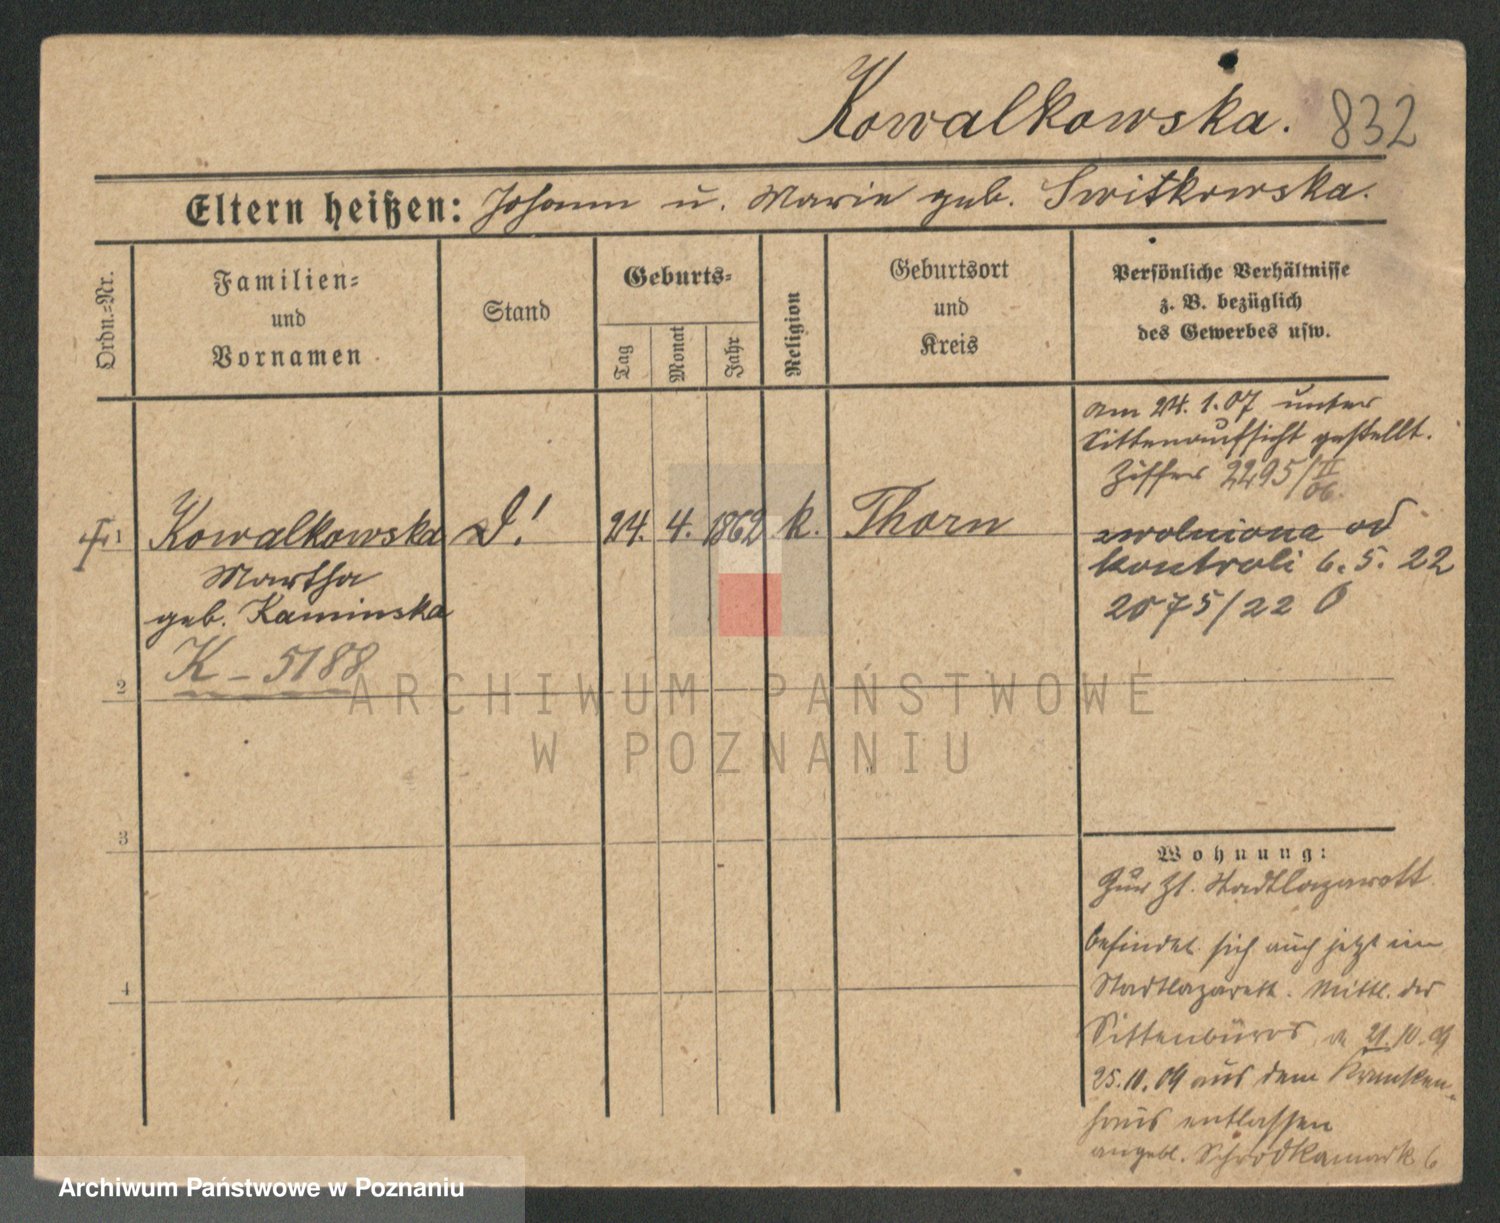 Kowalkowska. 832
Eltern heißen: Johann u. Marie geb. Switkowska.
Ordn.-Nr.
Familien-
und
Vornamen
Stand
Geburts-
Tag
Monat
Jahr
Religion
Geburtsort
und
Kreis
Persönliche Verhältnisse
z. B. bezüglich
des Gewerbes usw.
1
Kowalkowska
Martha
geb. Kaminska
K - 5188
24. 4. 1862
k.
Thorn
am 24. 1. 07 unter
Sittenaufsicht gestellt.
Ziffer 2295/II
06.
zwolniona od
kontroli 6. 5. 22
2075/22
2
3
4
Wohnung:
Zur Zt. Stadtlazarett
befindet sich auch jetzt im
Stadtlazarett. Mittl. des
Sittenbüros 21.10.09
25.10.09 aus dem Kranken-
haus entlassen
angebl. Schrodkamarkt 6
ARCHIWUM PAŃSTWOWE
W POZNANIU
Archiwum Państwowe w Poznaniu